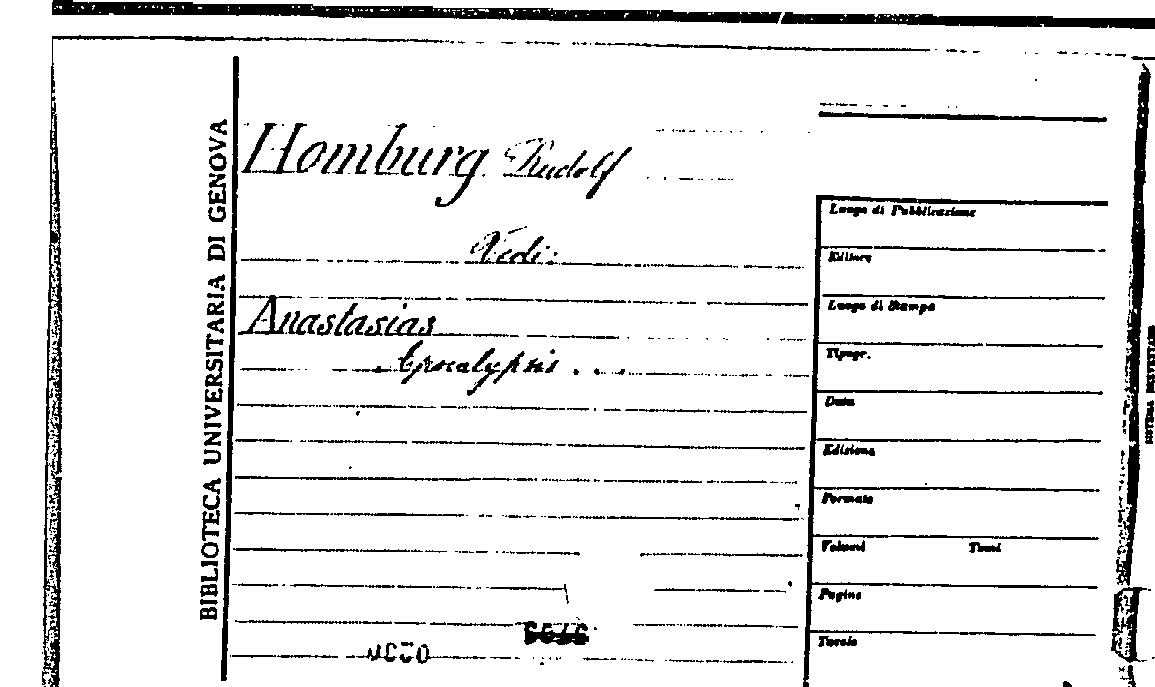 BIBLIOTECA UNIVERSITARIA DI GENOVA
Homburg Rudolf
Vedi:
Anastasias
Apocalypsis . . .
Luogo di Pubblicazione
Editore
Luogo di Stampa
Tipogr.
Data
Edizione
Formato
Volumi Tomi
Pagine
Tavole